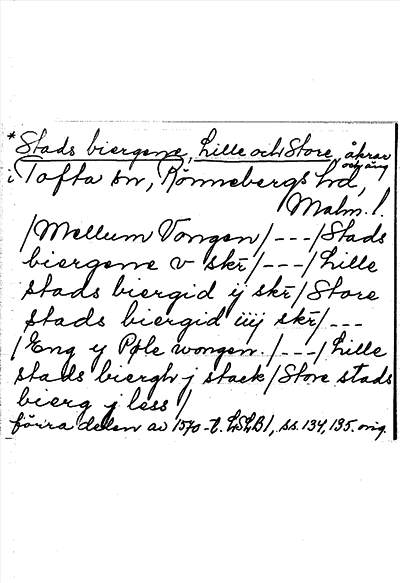 * Stads biergene, Lille och Store, åkrar
och äng
i Tofta sn, Rönnebergs hd,
Malm. l.
/Mellum Vongen/---/Stads
biergene v skr/---/Lille
stads biergid ij skr/Store
stads biergid iiij skr/---
/Eng ij Pøle wongen./---/Lille
stads biergh j stack/Store stads
bierg j less/
förra delen av 1570-t. LSLB1, ss. 134, 135. orig.